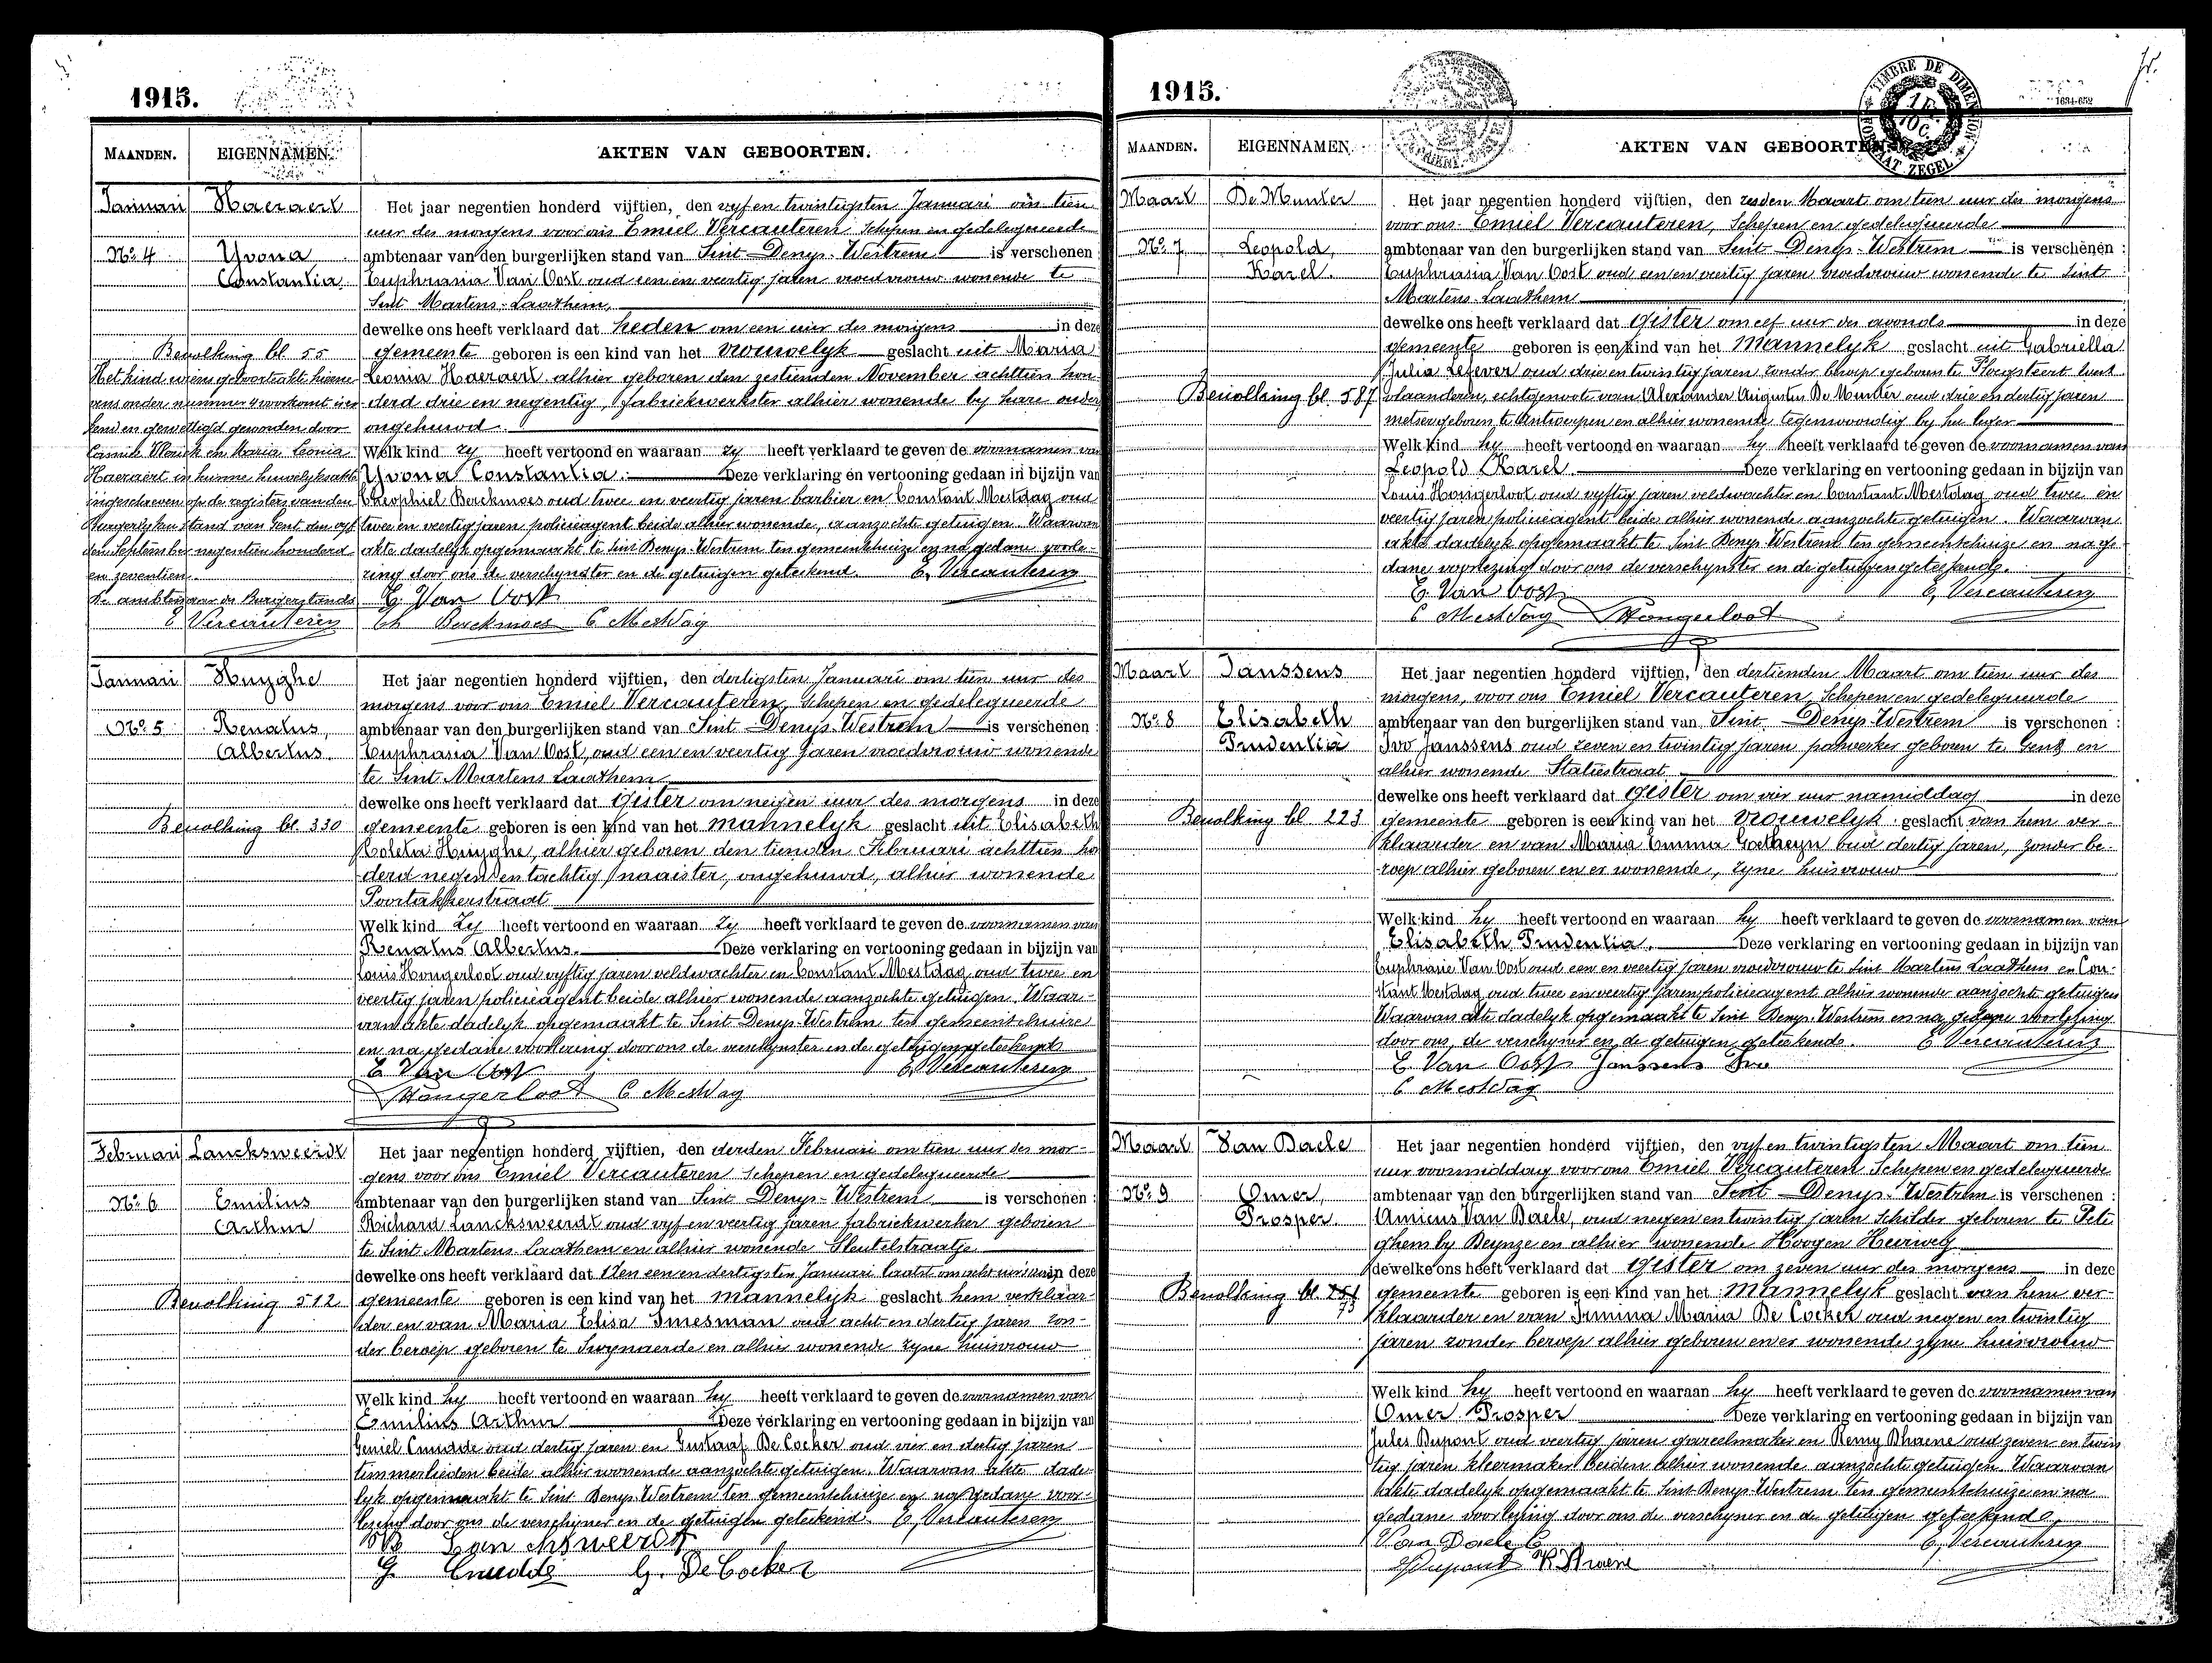 1915.
MAANDEN. EIGENNAMEN. AKTEN VAN GEBOORTEN.
Januari
Haeraert
No. 4
Yvona
Constantia.
Bevolking bl. 55
Het kind wiens geboorteakte hierne
vens onder nummer 4 voorkomt is er
kend en gewettigd geworden door
Camile en Maria Leonia
Haeraert in hunne huwelyksakte
ingeschreven op de registers van den
Burgerlyken stand van Gent den vyf
den September negentien honderd
en zeventien.
De ambtenaar der Burgerstands
E Vercauteren
Het jaar negentien honderd vijftien, den vyf en twintigsten Januari om tien
uur des morgens voor ons Emiel Vercauteren Schepen en gedelegueerde
ambtenaar van den burgerlijken stand van Sint Denys-Westrem is verschenen :
Euphrasia Van Oost oud een en veertig jaren vroedvrouw wonende te
Sint Martens-Laathem,
dewelke ons heeft verklaard dat heden om een uur des morgens in deze
gemeente geboren is een kind van het vrouwelyk geslacht uit Maria
Leonia Haeraert alhier geboren den zestienden November achttien hon
derd drie en negentig, fabriekwerkster alhier wonende by hare ouders
ongehuwd.
Welk kind zy heeft vertoond en waaraan zy heeft verklaard te geven de voornamen van
Yvona Constantia. Deze verklaring en vertooning gedaan in bijzijn van
Theophiel Berckmoes oud twee en veertig jaren barbier en Constant Mestdag oud
twee en veertig jaren policieagent beide alhier wonende, aanzochte getuigen. Waarvan
akte dadelyk opgemaakt te Sint Denys-Westrem ten gemeentehuize en na gedane voorle-
zing door ons de verschynster en de getuigen geteekend. E, Vercauteren
E. Van Oost
Th Berckmoes C Mestdag
Januari
Huyghe
No. 5
Renatus,
Albertus.
Bevolking bl. 330
Het jaar negentien honderd vijftien, den dertigsten Januari om tien uur des
morgens voor ons Emiel Vercauteren, Schepen en gedelegueerde
ambtenaar van den burgerlijken stand van Sint Denys-Westrem is verschenen :
Euphrasia Van Oost, oud een en veertig jaren vroedvrouw wonende
te Sint Martens Laathem
dewelke ons heeft verklaard dat gister om negen uur des morgens in deze
gemeente geboren is een kind van het mannelyk geslacht uit Elisabeth
Coleta Huyghe, alhier geboren den tienden Februari achttien hon
derd negen en tachtig, naaister, ongehuwd, alhier wonende
Poortakkerstraat
Welk kind Zy heeft vertoond en waaraan Zy heeft verklaard te geven de voornamen van
Renatus Albertus. Deze verklaring en vertooning gedaan in bijzijn van
Louis Hongerloot oud vyftig jaren veldwachter en Constant Mestdag oud twee en
veertig jaren policieagent beide alhier wonende aanzochte getuigen. Waar-
van akte dadelyk opgemaakt te Sint Denys-Westrem ten gemeentehuize
en na gedane voorlezing door ons de verschynster en de getuigen geteekend
E Van Oost E, Vercauteren
Hongerloot C Mestdag
Februari
Lancksweerdt
No. 6
Emilius
Arthur
Bevolking 512
Het jaar negentien honderd vijftien, den derden Februari om tien uur des mor-
gens voor ons Emiel Vercauteren Schepen en gedelegueerde
ambtenaar van den burgerlijken stand van Sint Denys-Westrem is verschenen :
Richard Lancksweerdt oud vyf en veertig jaren fabriekwerker geboren
te Sint Martens-Laathem en alhier wonende Sleutelstraatje
dewelke ons heeft verklaard dat den een en dertigsten Januari laatst om acht uur in deze
gemeente geboren is een kind van het mannelyk geslacht hem verklaar-
der en van Maria Elisa Imesman oud acht en dertig jaren zon-
der beroep geboren te Swynaerde en alhier wonende zyne huisvrouw
Welk kind hy heeft vertoond en waaraan hy heeft verklaard te geven de voornamen van
Emilius Arthur Deze verklaring en vertooning gedaan in bijzijn van
Geniel Cnudde oud dertig jaren en Gustaaf De Cocker oud vier en dertig jaren
timmerlieden beide alhier wonende aanzochte getuigen. Waarvan akte dade-
lyk opgemaakt te Sint Denys Westrem ten gemeentehuize en na gedane voor-
lezing door ons de verschyner en de getuigen geteekend. E, Vercauteren
Lancksweerdt
G Cnudde G. De Cocker
1915.
TIMBRE DE DIMENSION
1 F. 10 C.
FORMAAT ZEGEL
1634-652
MAANDEN. EIGENNAMEN. AKTEN VAN GEBOORTEN.
Maart
De Munter
No. 7
Leopold,
Karel.
Bevolking bl. 587
Het jaar negentien honderd vijftien, den zesden Maart om tien uur des morgens
voor ons Emiel Vercauteren, Schepen en gedelegueerde
ambtenaar van den burgerlijken stand van Sint Denys-Westrem is verschenen :
Euphrasia Van Oost oud een en veertig jaren vroedvrouw wonende te Sint
Martens-Laathem
dewelke ons heeft verklaard dat gister om elf uur des avonds in deze
gemeente geboren is een kind van het mannelyk geslacht uit Gabriella
Julia Lefever oud drie en twintig jaren zonder beroep geboren te Ploegsteert West
vlaanderen, echtgenoote van Alexander Augustus De Munter oud drie en dertig jaren
metser geboren te Antwerpen en alhier wonende tegenwoordig by het leger
Welk kind hy heeft vertoond en waaraan hy heeft verklaard te geven de voornamen van
Leopold Karel. Deze verklaring en vertooning gedaan in bijzijn van
Louis Hongerloot oud vyftig jaren veldwachter en Constant Mestdag oud twee en
veertig jaren policieagent beide alhier wonende aanzochte getuigen. Waarvan
akte dadelyk opgemaakt te Sint Denys-Westrem ten gemeentehuize en na ge-
dane voorlezing door ons de verschynster en de getuigen geteekend.
E. Van Oost E, Vercauteren
C Mestdag Hongerloot
Maart
Janssens
No. 8
Elisabeth
Prudentia
Bevolking bl 223
Het jaar negentien honderd vijftien, den dertienden Maart om tien uur des
morgens, voor ons Emiel Vercauteren, Schepen en gedelegueerde
ambtenaar van den burgerlijken stand van Sint Denys-Westrem is verschenen :
Ivo Janssens oud zeven en twintig jaren geboren te Gent en
alhier wonende Statiestraat
dewelke ons heeft verklaard dat gister om vier uur namiddag in deze
gemeente geboren is een kind van het vrouwelyk geslacht van hem ver-
klaarder en van Maria Emma Goetheyn oud dertig jaren, zonder be-
roep alhier geboren en er wonende, zyne huisvrouw
Welk kind hy heeft vertoond en waaraan hy heeft verklaard te geven de voornamen van
Elisabeth Prudentia. Deze verklaring en vertooning gedaan in bijzijn van
Euphrasie Van Oost oud een en veertig jaren vroedvrouw te Sint Martens Laathem en Con-
stant Mestdag oud twee en veertig jaren policieagent alhier wonende aanzochte getuigen
Waarvan akte dadelyk opgemaakt te Sint Denys-Westrem en na gedane voorlezing
door ons, de verschyner en de getuigen geteekend. E Vercauteren
E. Van Oost Janssens Ivo
C Mestdag
Maart
Van Daele
No. 9
Omer,
Prosper.
Bevolking bl. 73
Het jaar negentien honderd vijftien, den vyf en twintigsten Maart om tien
uur voormiddag voor ons Emiel Vercauteren Schepen en gedelegueerde
ambtenaar van den burgerlijken stand van Sint Denys-Westrem is verschenen :
Amicus Van Daele, oud negen en twintig jaren Schilder geboren te Pete
ghem by Deynze en alhier wonende Hoogen Heerweg
dewelke ons heeft verklaard dat gister om zeven uur des morgens in deze
gemeente geboren is een kind van het mannelyk geslacht van hem ver-
klaarder en van Irmina Maria De Cocker oud negen en twintig
jaren zonder beroep alhier geboren en er wonende zyne huisvrouw
Welk kind hy heeft vertoond en waaraan hy heeft verklaard te geven de voornamen van
Omer Prosper Deze verklaring en vertooning gedaan in bijzijn van
Jules Dupont oud veertig jaren gareelmaker en Remy Dhaene oud zeven en twin
tig jaren kleermaker beiden alhier wonende aanzochte getuigen. Waarvan
akte dadelyk opgemaakt te Sint-Denys-Westrem ten gemeentehuize en na
gedane voorlezing door ons de verschyner en de getuigen geteekend.
Van Daele E, Vercauteren
J Dupont R Dhaene